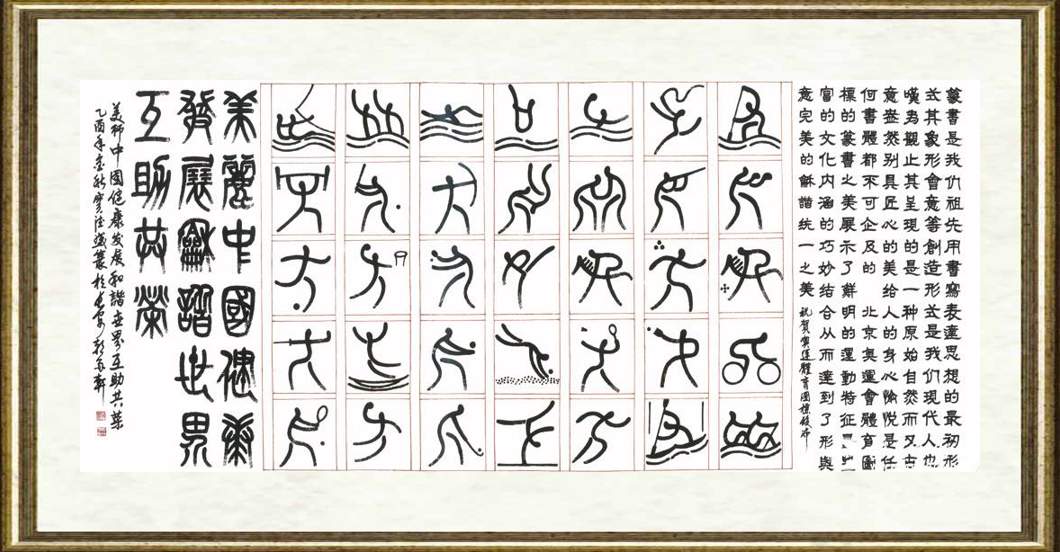 篆書是我们祖先用書寫表達思想的最初形
式其象形會意等創造形式是我们現代人也
嘆为觀止其呈現的是一种原始自然而又古
意盎然别具匠心的美给人的身心愉悦是任
何書體都不可企及的 北京奥運會體育圖
標的篆書之美展示了鮮明的運動特征
富的文化内涵的巧妙结合从而達到了形與
意完美的龢諧统一之美 祝賀奥運體育圖標發布
美麗中國健康
發展龢諧世界
互助共榮
美丽中國健康发展和諧世界互助共荣
乙酉年金秋